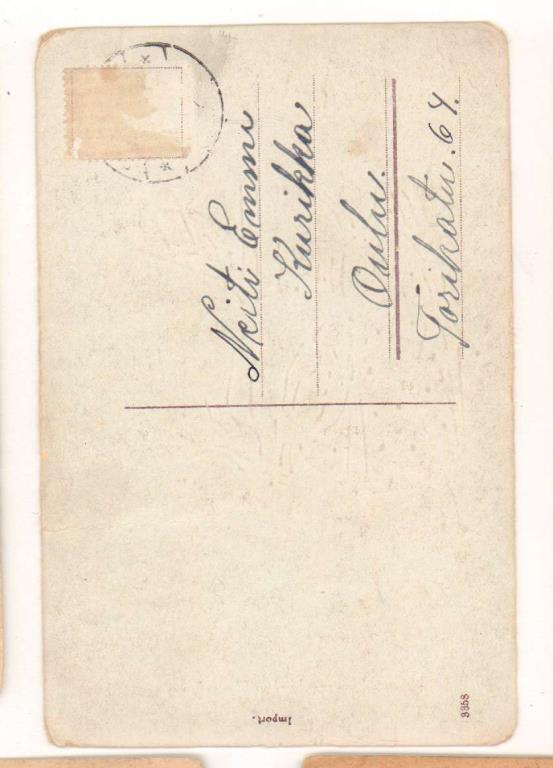 Neiti Emmi
Kurikka
Oulu.
Torikatu. 64.
Import.
3358